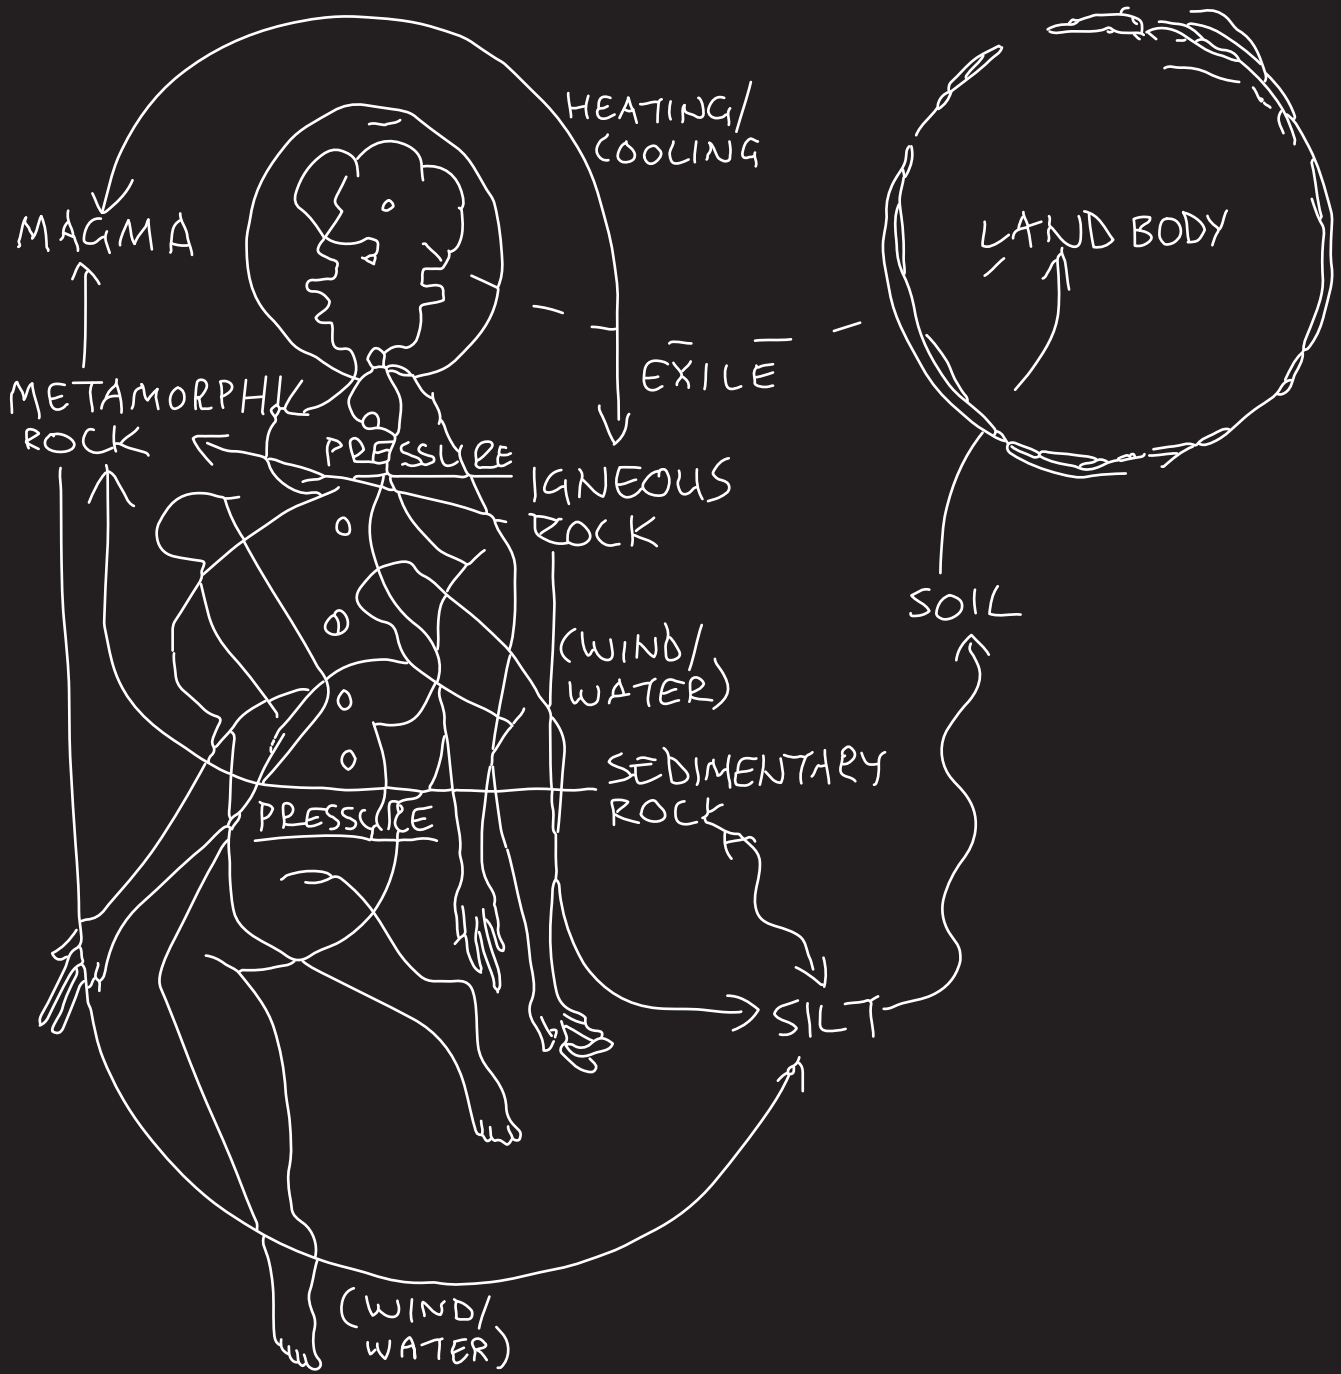 HEATING/
COOLING
MAGMA
LAND BODY
EXILE
METAMORPHIC
ROCK
PRESSURE
IGNEOUS
ROCK
SOIL
(WIND/
WATER)
SEDIMENTARY
ROCK
PRESSURE
SILT
(WIND/
WATER)